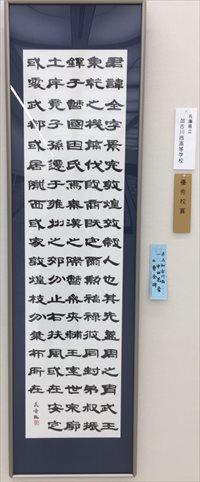 君諱全字景完敦煌效穀人也其先蓋周之胄武王
秉乾之機翦伐殷商既定爾勳福祿攸同封弟叔振
鐸于曹國因氏焉秦漢之際曹參夾輔王室世宗廓
土斥竟子孫遷于雍州之郊分止右扶風或在安定
或處武都或居隴西或家敦煌枝分葉布所在
兵庫県立
加古川西高等学校
優秀校賞